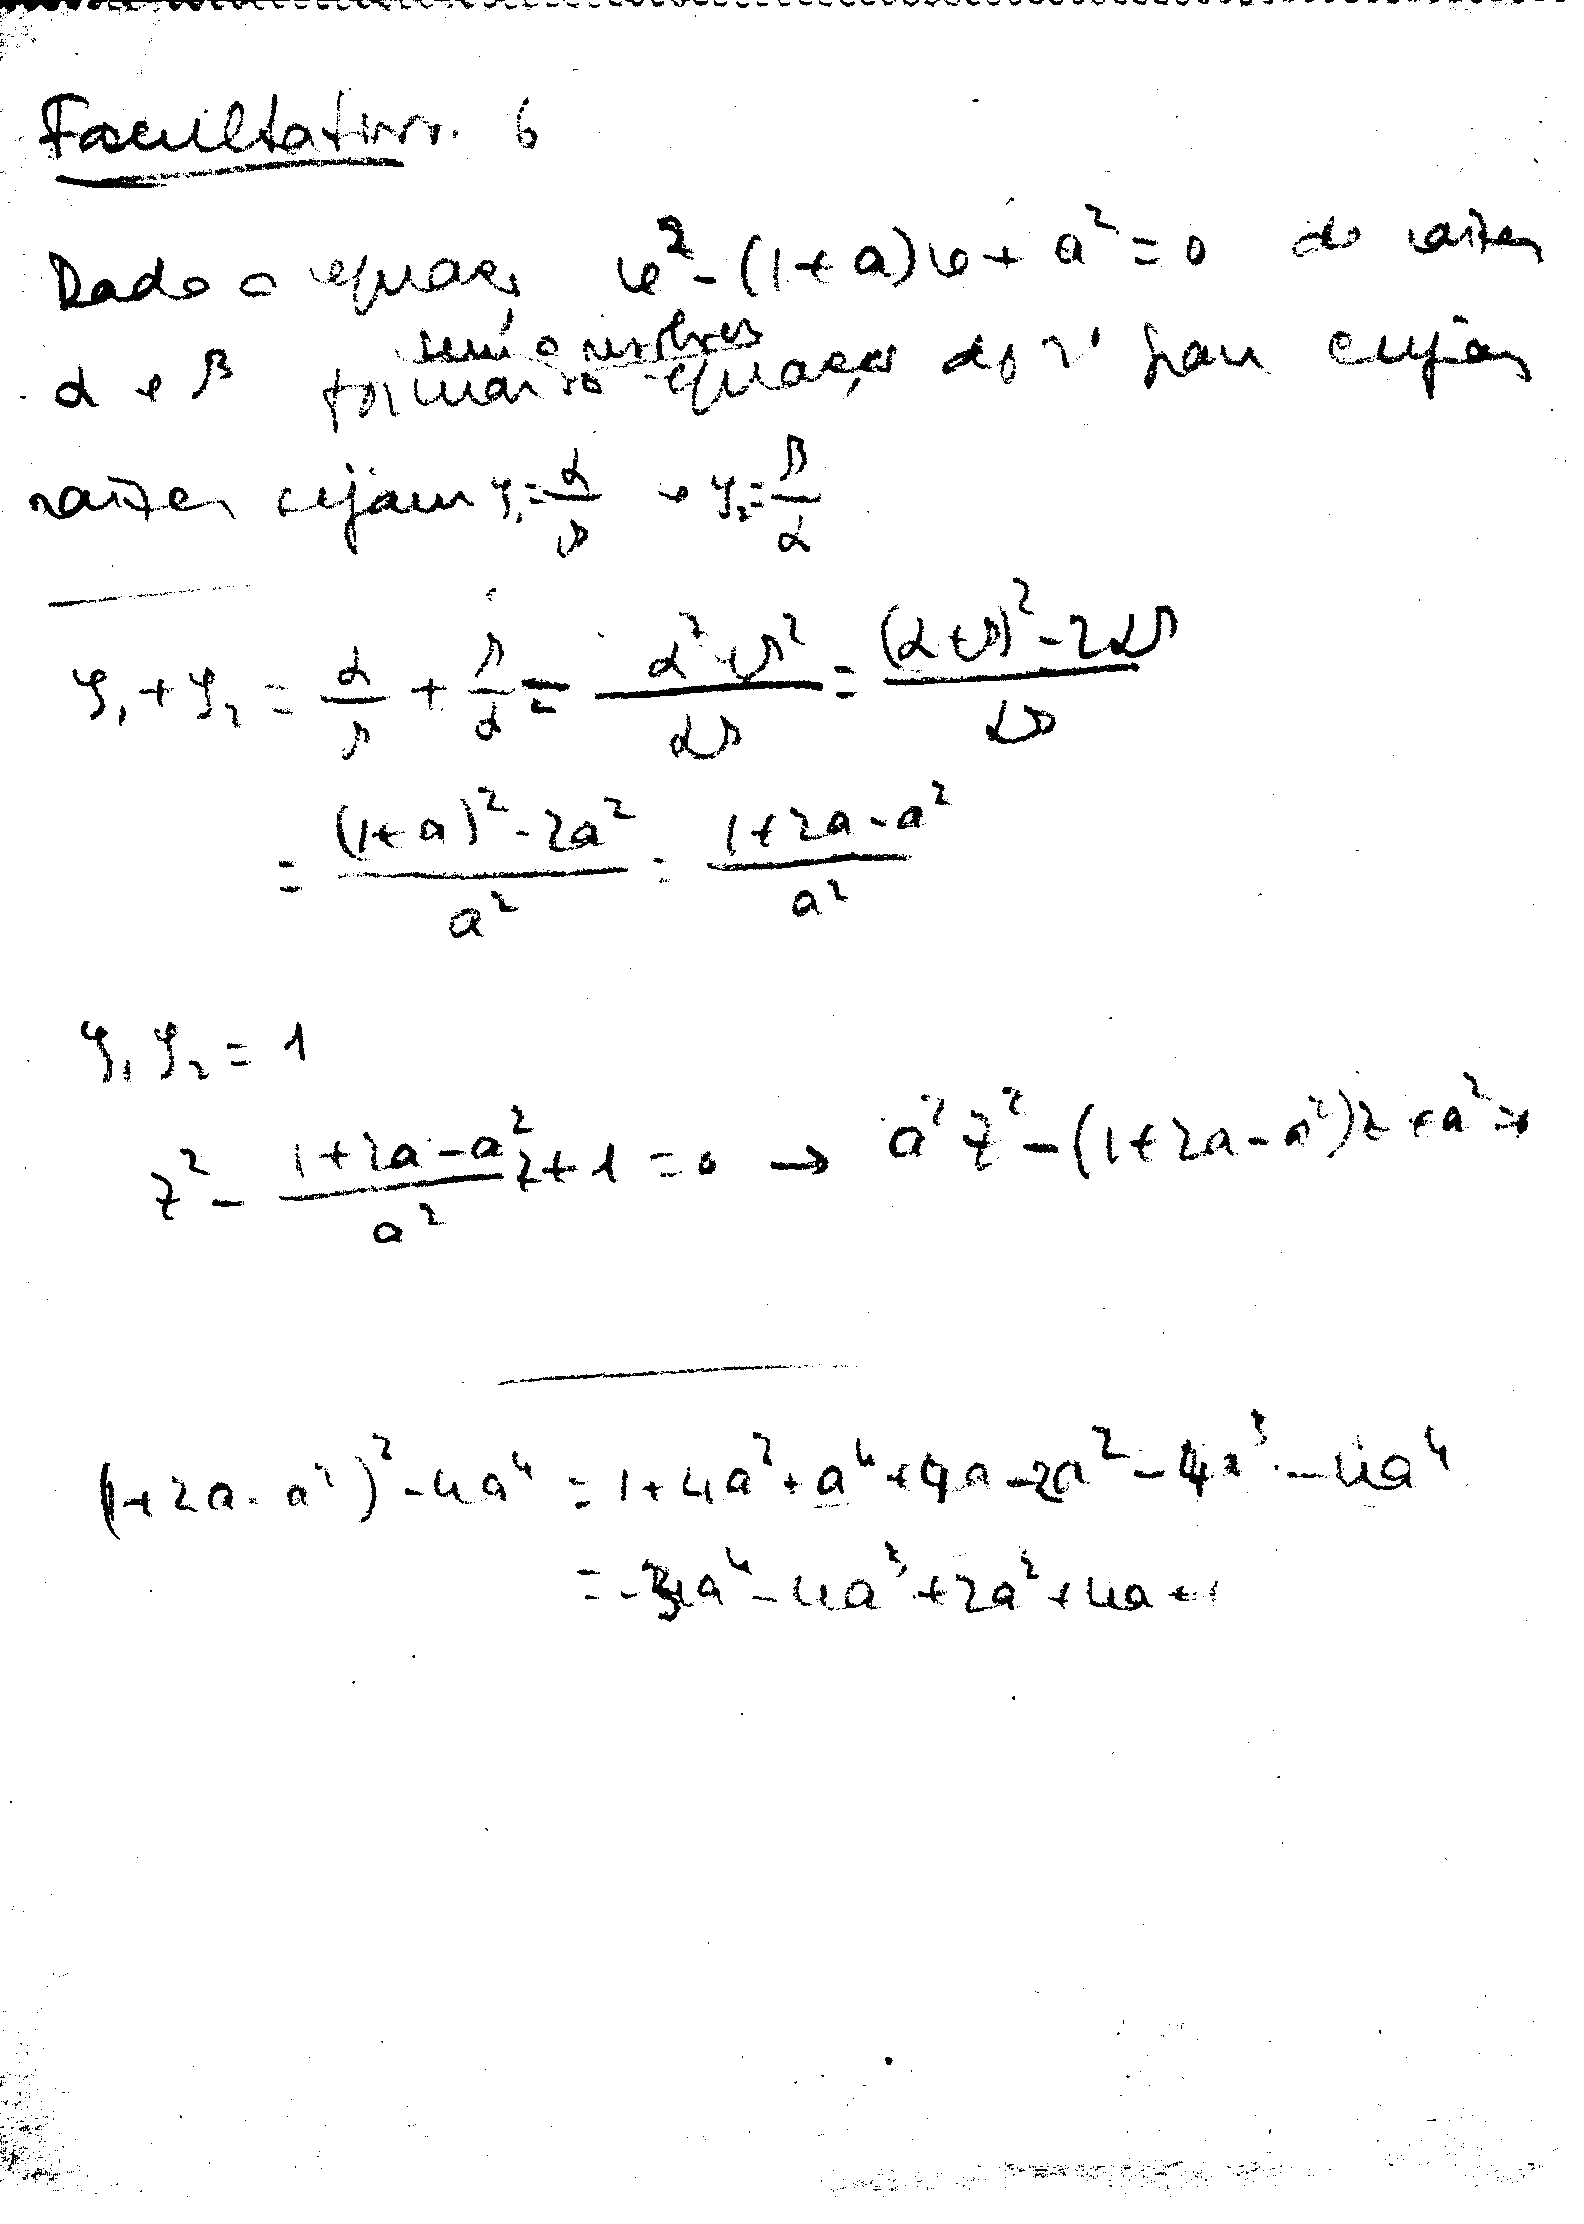 Facultativo. 6
Dado a equação x² - (1+a)x + a² = 0 de raízes
sem a resolveres
α e β formar a equação do 2º grau cujas
raízes sejam y₁ = α/β e y₂ = β/α
y₁ + y₂ = α/β + β/α = (α² + β²)/αβ = ((α+β)² - 2αβ)/αβ
= ((1+a)² - 2a²)/a² = (1+2a-a²)/a²
y₁ y₂ = 1
z² - (1+2a-a²)/a² z + 1 = 0 → a²z² - (1+2a-a²)z + a² =
(1+2a-a²)² - 4a⁴ = 1 + 4a² + a⁴ + 4a - 2a² - 4a³ - 4a⁴
= -3a⁴ - 4a³ + 2a² + 4a + 1